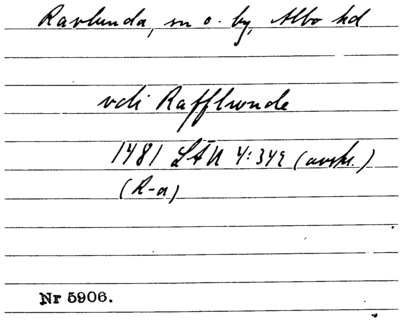 Ravlunda, sn o. by, Albo hd
vdi Rafflwnde
1481 LÄU 4:349 (avskr.)
(R-a)
Nr 5906.